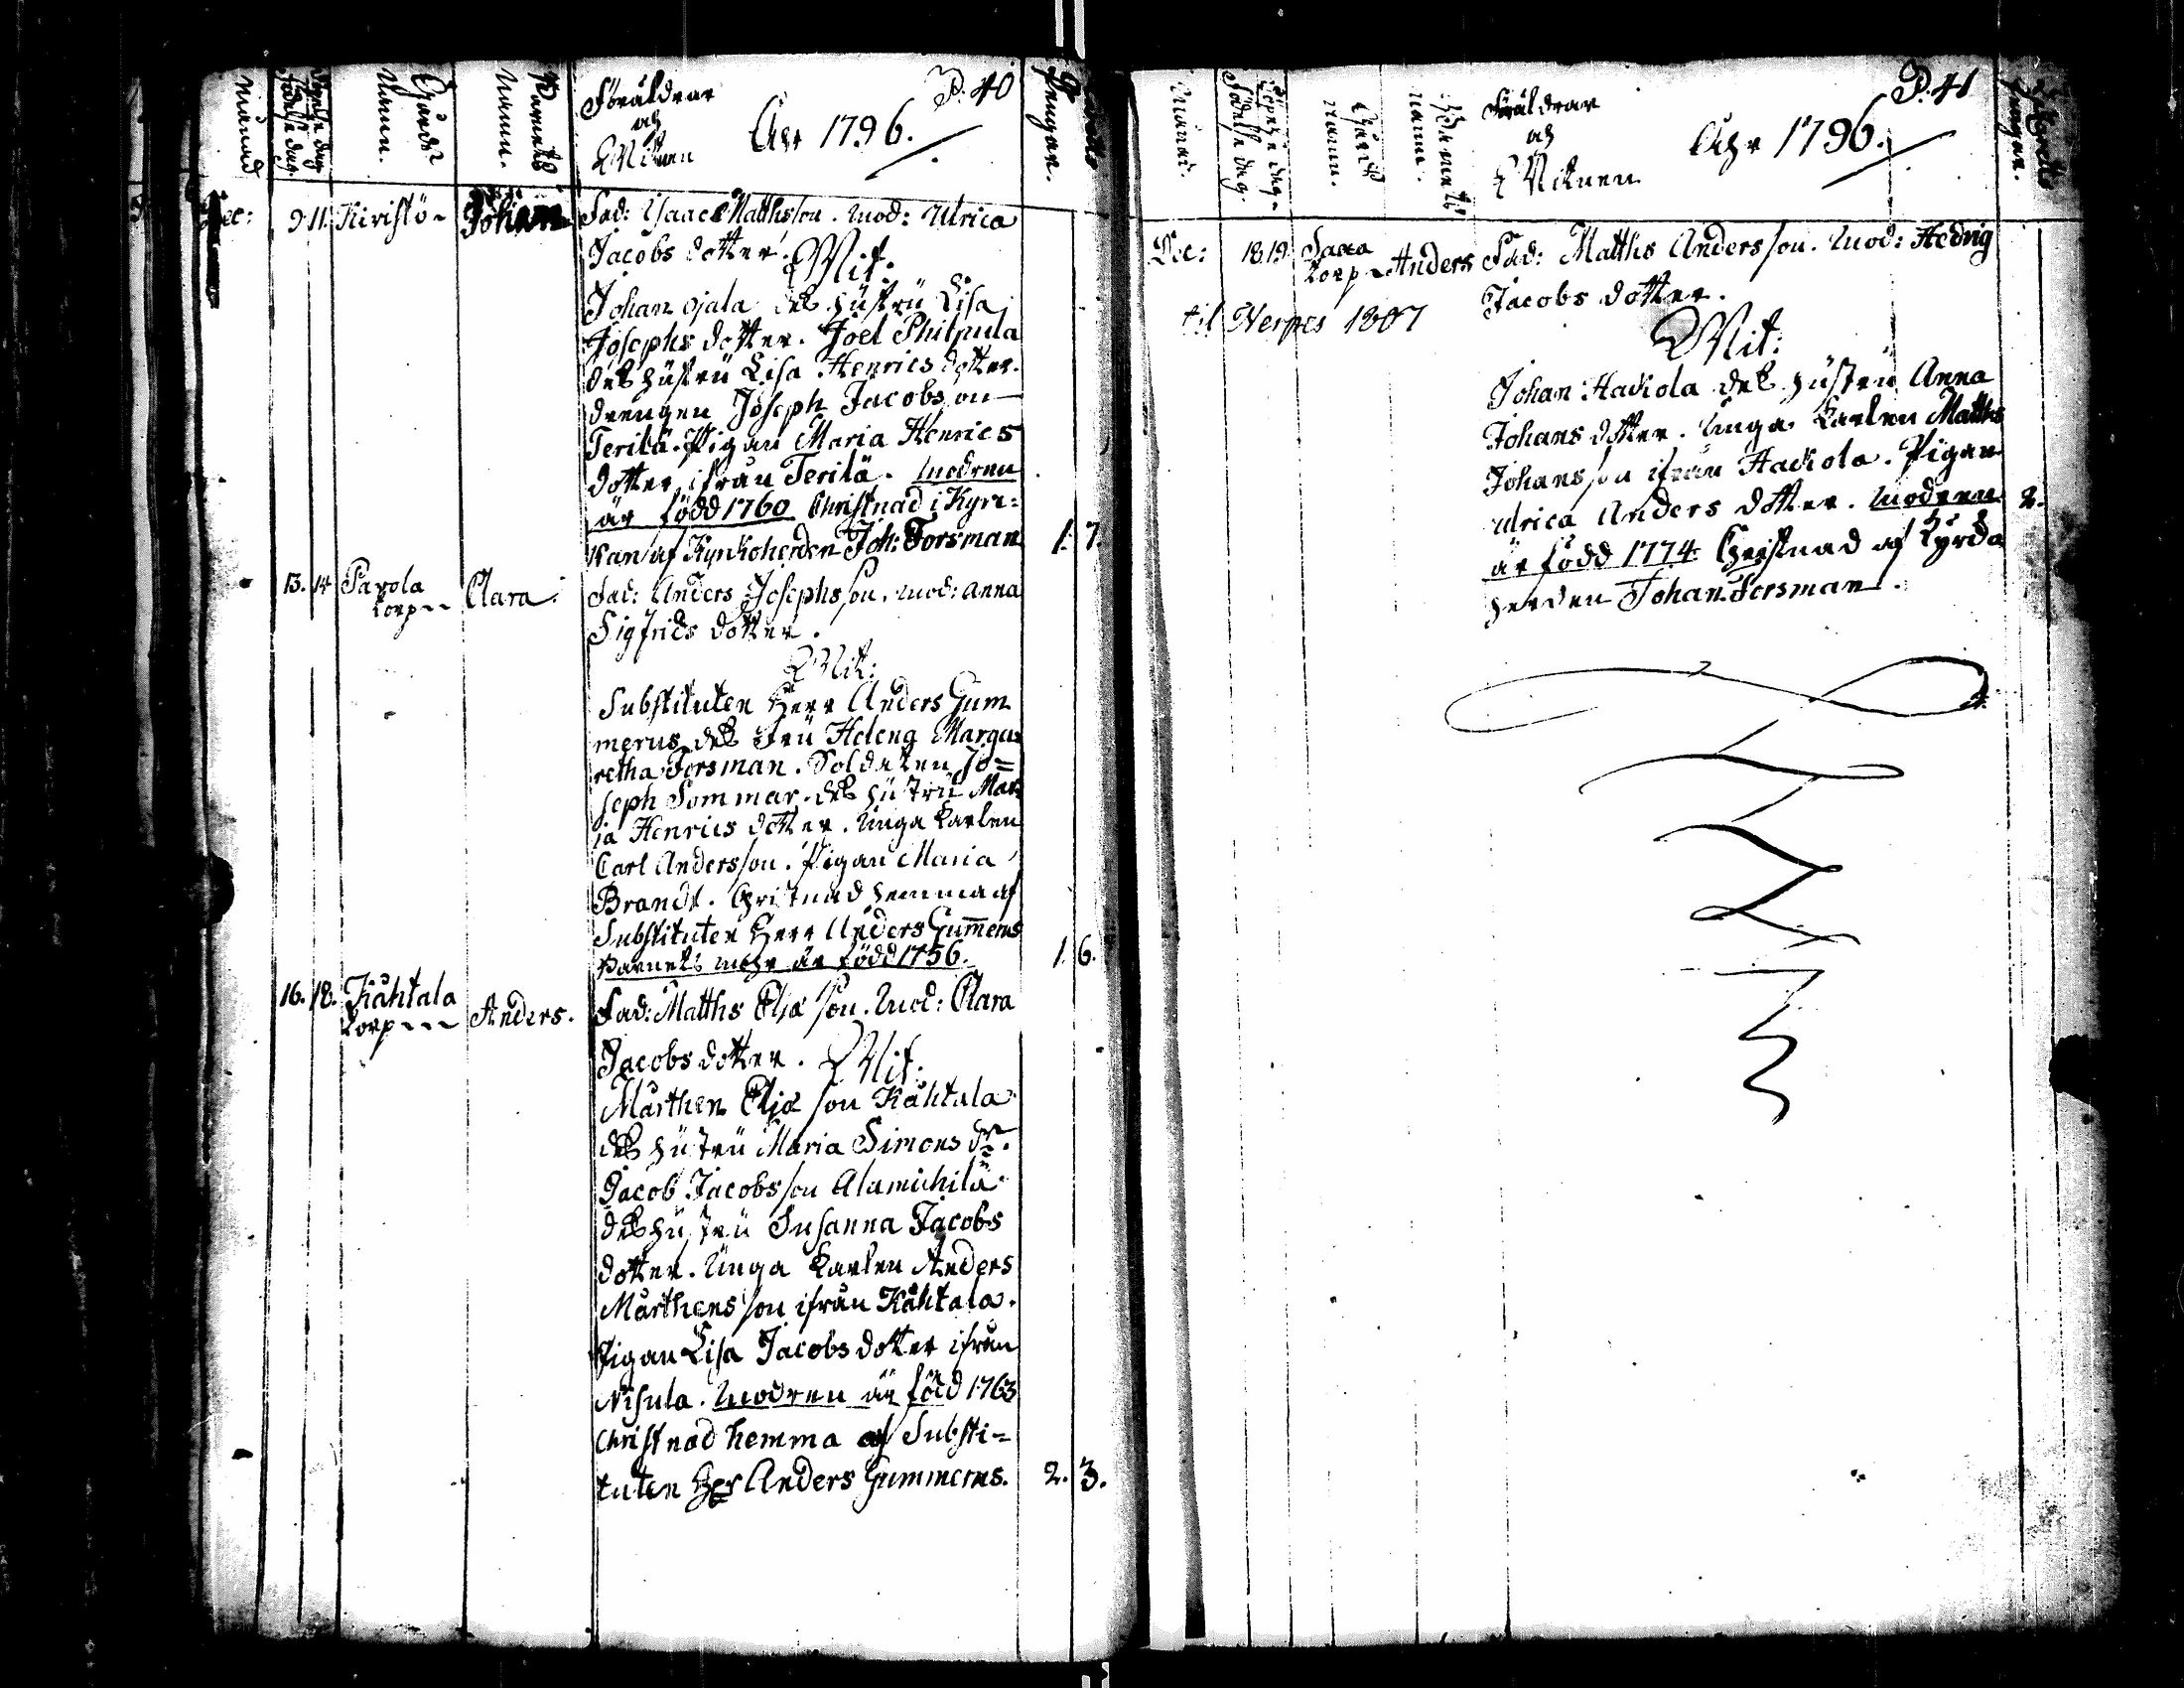 P. 40
Månad
Döpelse dag
Födelse dag.
Gårds
Namn.
Barnets
Namn.
Föräldrar
och
Witnen
Åhr 1796.
Pengar.
Dec: 9. 11. Kiristö - Johan Fad: Isaac Matthsson. Mod: Ulrica
Jacobs dotter. Wit.
Johan Ojala des hustru Lisa
Josephs dotter. Joel Philpula
des hustru Lisa Henrics dotter.
drengen Joseph Jacobsson
Terilä. Pigan Maria Henrics
dotter ifrån Terilä. Modren
är född 1760 Christnad i Kyr:
kan af Kyrkoherden Joh: Forsman 1. 7.
13. 14 Parola
torp - - Clara. Fad: Anders Josephsson. Mod: Anna
Sigfrids dotter.
Wit:
Substituten Herr Anders Gum
merus des fru Helena Marga=
retha Forsman. Soldaten Jo=
seph Sommar. des hustru Mar=
ia Henrics dotter. Unga Karlen
Carl Andersson. Pigan Maria
Brandt. Christnad hemma af
Substituten Herr Anders Gummerus
Barnets mohr är född 1756. 1. 6.
16. 18. Kåhtala
torp - - - Anders. Fad: Matths Eliæ son. Mod: Clara
Jacobs dotter. Wit.
Mårthen Eliæ son Kåhtala
des hustru Maria Simons dr.
Jacob Jacobsson Alamichilä
des hustru Susanna Jacobs
dotter. Unga Karlen Anders
Mårthens son ifrån Kåhtala.
Pigan Lisa Jacobs dotter ifrån
Nisula. Modren är född 1763
Christnad hemma af Substi=
tuten Her Anders Gummerus. 2. 3.
P. 41
Månad.
Döpelse dag
Födelse dag.
Gårds
namn.
Barnets
namn.
Föräldrar
och
Witnen
Åhr 1796.
Pengar.
Dec: 18. 19 torp - Anders Fad: Matths Andersson. Mod: Hedvig
Jacobs dotter.
til Nerpes 1807
Wit:
Johan Hackola des hustru Anna
Johans dotter. Unga Karlen Matths
Johansson ifrån Hackola. Pigan
Ulrica Anders dotter. Modren 2.
är född 1774. Christnad af Kyrcko
herden Johan Forsman.